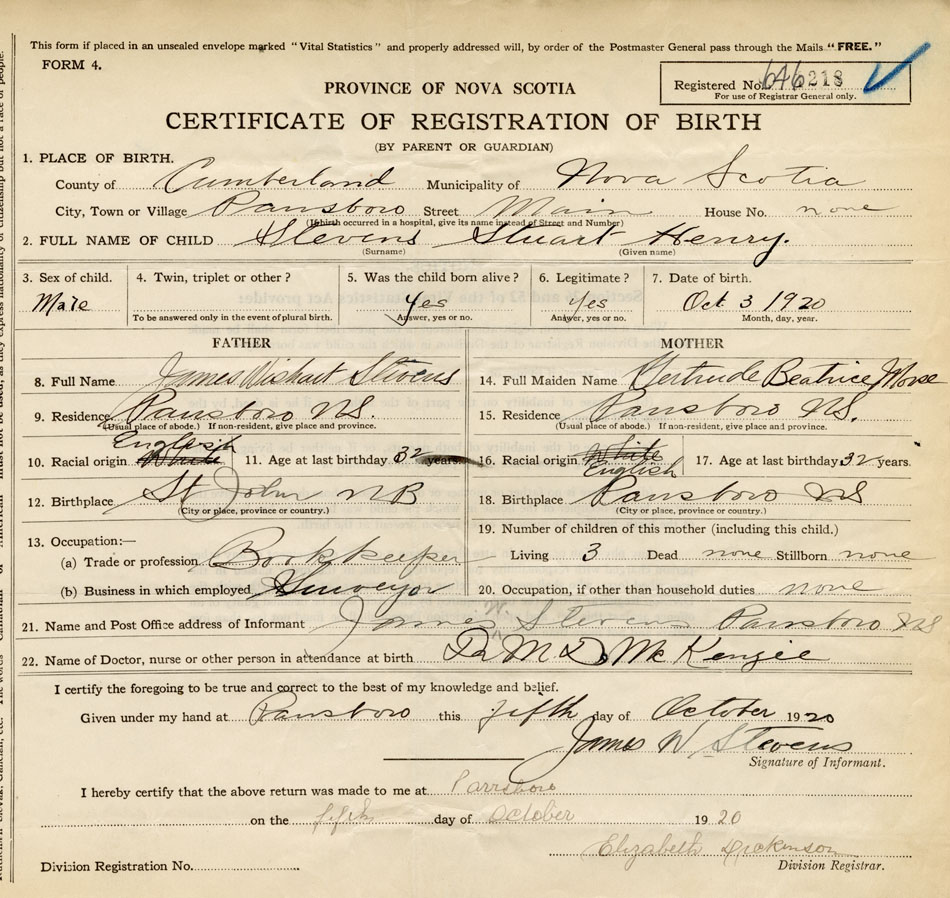 This form if placed in an unsealed envelope marked "Vital Statistics" and properly addressed will, by order of the Postmaster General pass through the Mails "FREE."
FORM 4.
Registered No. 646218
For use of Registrar General only.
PROVINCE OF NOVA SCOTIA
CERTIFICATE OF REGISTRATION OF BIRTH
(BY PARENT OR GUARDIAN)
1. PLACE OF BIRTH.
County of Cumberland Municipality of Nova Scotia
City, Town or Village Parrsboro Street Main House No. none
(If birth occurred in a hospital, give its name instead of Street and Number)
2. FULL NAME OF CHILD Stevens Stuart Henry.
(Surname) (Given name)
3. Sex of child. 4. Twin, triplet or other? 5. Was the child born alive? 6. Legitimate? 7. Date of birth.
Male Yes Yes Oct 3 1920
To be answered only in the event of plural birth. Answer, yes or no. Answer, yes or no. Month, day, year.
FATHER MOTHER
8. Full Name James Wishart Stevens 14. Full Maiden Name Gertrude Beatrice Morse
9. Residence Parrsboro NS. 15. Residence Parrsboro NS.
(Usual place of abode.) If non-resident, give place and province. (Usual place of abode.) If non-resident, give place and province.
English
10. Racial origin White 11. Age at last birthday 32 years. 16. Racial origin White 17. Age at last birthday 32 years.
English
12. Birthplace St John NB 18. Birthplace Parrsboro NS
(City or place, province or country.) (City or place, province or country.)
13. Occupation:— 19. Number of children of this mother (including this child.)
(a) Trade or profession Bookkeeper Living 3 Dead none Stillborn none
(b) Business in which employed Surveyor 20. Occupation, if other than household duties none
21. Name and Post Office address of Informant James W. Stevens Parrsboro NS
22. Name of Doctor, nurse or other person in attendance at birth Dr M D McKenzie
I certify the foregoing to be true and correct to the best of my knowledge and belief.
Given under my hand at Parrsboro this fifth day of October 1920
James W Stevens
Signature of Informant.
I hereby certify that the above return was made to me at Parrsboro
on the fifth day of October 1920
Elizabeth Dickinson
Division Registration No. Division Registrar.